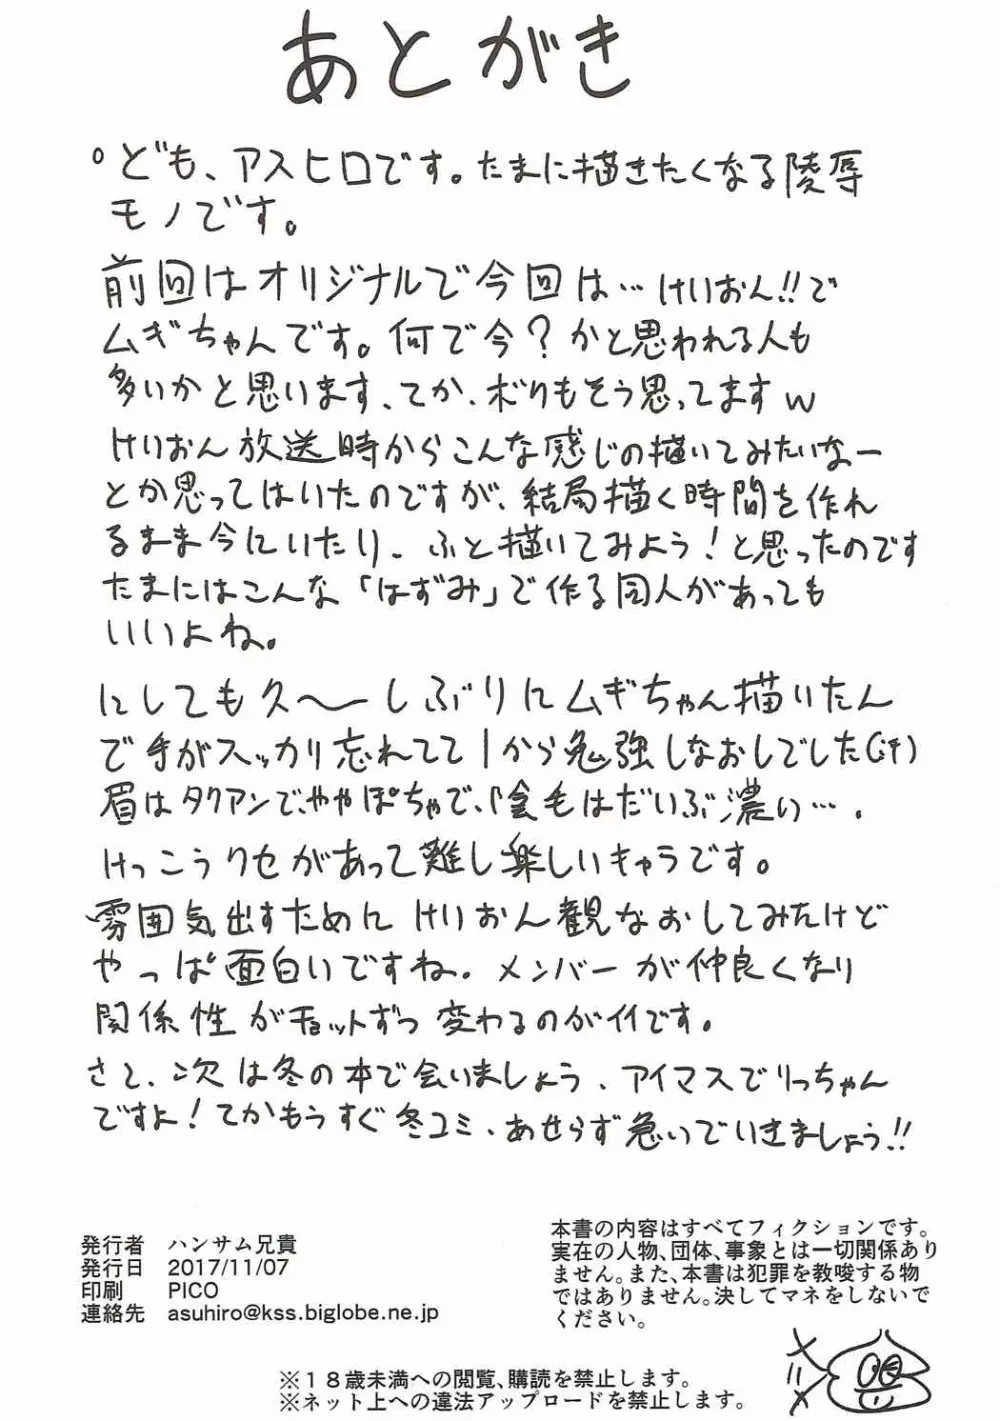 あとがき
どども、アスヒロです。たまに描きたくなる陵辱
モノです。
前回はオリジナルで今回は…けいおん!!で
ムギちゃんです。何で今?かと思われる人も
多いかと思います、てか、ボクもそう思ってますw
けいおん放送時からこんな感じの描いてみたいなー
とか思ってはいたのですが、結局描く時間を作れ
るまま今にいたり、ふと描いてみよう!と思ったのです
たまにはこんな「はずみ」で作る同人があっても
いいよね。
にしても久〜しぶりにムギちゃん描いたん
で手がスッカリ忘れてて1から勉強しなおしでした(汗)
眉はタクアンで、ややぽちゃで、
けっこうクセがあって難し楽しいキャラです。
雰囲気出すためにけいおん観なおしてみたけど
やっぱ面白いですね。メンバーが仲良くなり
関係性がチョットずつ変わるのがイイです。
さて、次は冬の本で会いましょう、アイマスでりっちゃん
ですよ!てかもうすぐ冬コミ、あせらず急いでいきましょう!!
発行者 ハンサム兄貴
発行日 2017/11/07
印刷 PICO
連絡先 asuhiro@kss.biglobe.ne.jp
本書の内容はすべてフィクションです。
実在の人物、団体、事象とは一切関係あり
ません。また、本書は犯罪を教唆する物
ではありません。決してマネをしないで
ください。
※18歳未満への閲覧、購読を禁止します。
※ネット上への違法アップロードを禁止します。